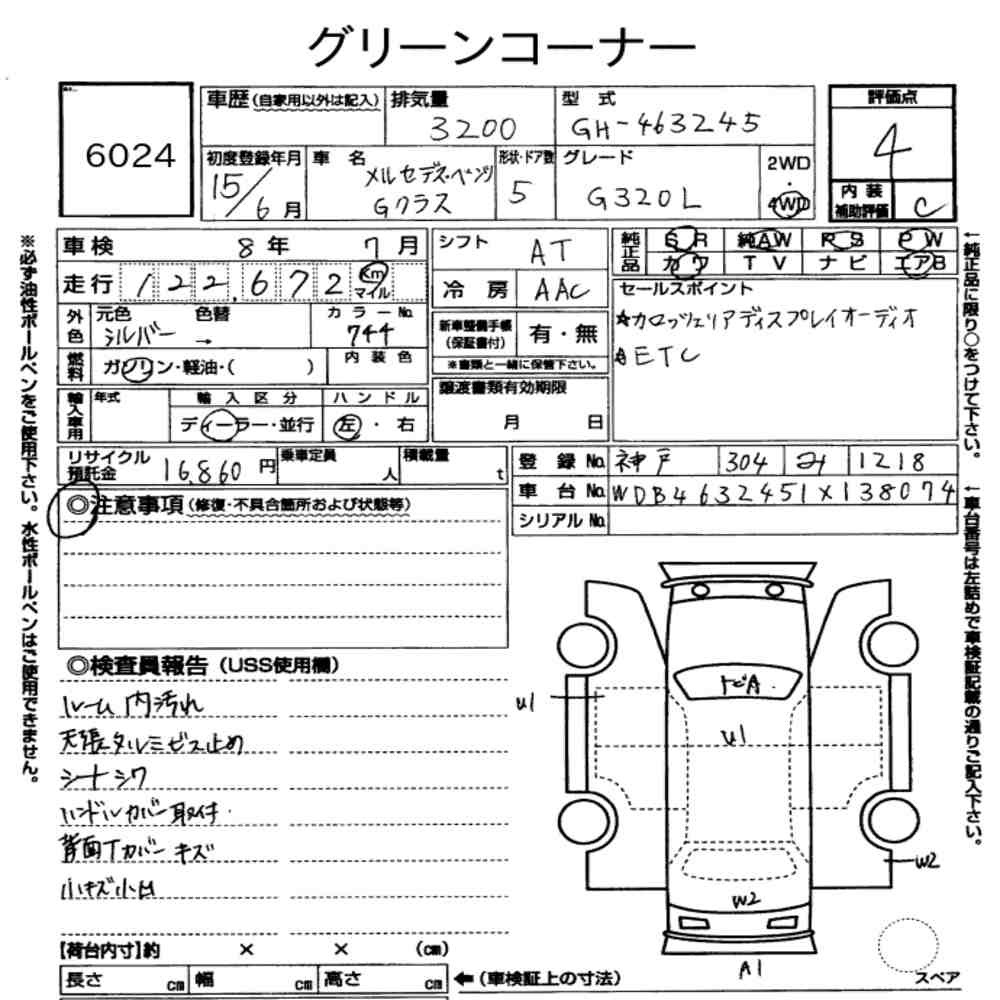 グリーンコーナー
6024
車歴(自家用以外は記入) 排気量 3200 型式 GH-463245
評価点 4
初度登録年月 15/6月 車名 メルセデス・ベンツ Gクラス 形状・ドア数 5 グレード G320L 2WD・4WD
内装補助評価 C
車検 8年 7月 シフト AT 純正品 SR 純AW RS PW
カワ TV ナビ エアB
走行 122,672 Km マイル 冷房 AAC
外色 元色 シルバー 色替 → カラーNo. 744
セールスポイント
★カロッツェリアディスプレイオーディオ
★ETC
新車整備手帳(保証書付) 有・無
※書類と一緒に保管下さい。
燃料 ガソリン・軽油・( ) 内装色
譲渡書類有効期限 月 日
輸入車用 年式 輸入区分 ディーラー・並行 ハンドル 左・右
リサイクル預託金 16,860円 乗車定員 人 積載量 t
登録No. 神戸 304 み 1218
車台No. WDB4632451X138074
シリアルNo.
◎注意事項(修復・不具合箇所および状態等)
◎検査員報告(USS使用欄)
ルーム内汚れ
天張タルミビス止め
シートシワ
ハンドルカバー取付
背面Tカバーキズ
小キズ小凹
U1
トビA
U1
W2
W2
A1
スペア
【荷台内寸】約 × × (cm)
長さ cm 幅 cm 高さ cm ←(車検証上の寸法)
※必ず油性ボールペンをご使用下さい。水性ボールペンはご使用できません。
←純正品に限り○をつけて下さい。
←車台番号は左詰めで車検証記載の通りご記入下さい。